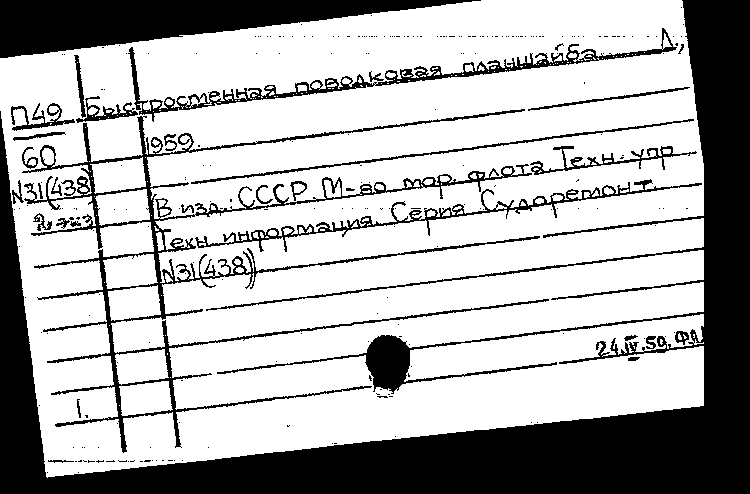 П49 Быстросменная поводковая планшайба. Л.,
60 1959.
N31(438) В изд.: СССР. М-во мор. флота. Техн. упр
2 экз Техн информация. Серия Судоремонт.
N31(438))
24.IV.59.
1.